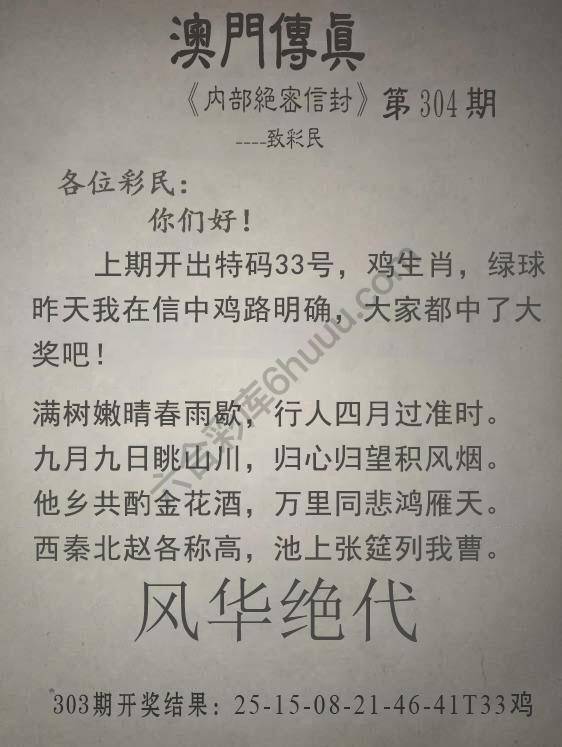 澳門傳眞
《内部絕密信封》第304期
----致彩民
各位彩民：
你们好！
上期开出特码33号，鸡生肖，绿球
昨天我在信中鸡路明确，大家都中了大
奖吧！
满树嫩晴春雨歇，行人四月过准时。
九月九日眺山川，归心归望积风烟。
他乡共酌金花酒，万里同悲鸿雁天。
西秦北赵各称高，池上张筵列我曹。
风华绝代
303期开奖结果：25-15-08-21-46-41T33鸡
六合彩库6huuu.com